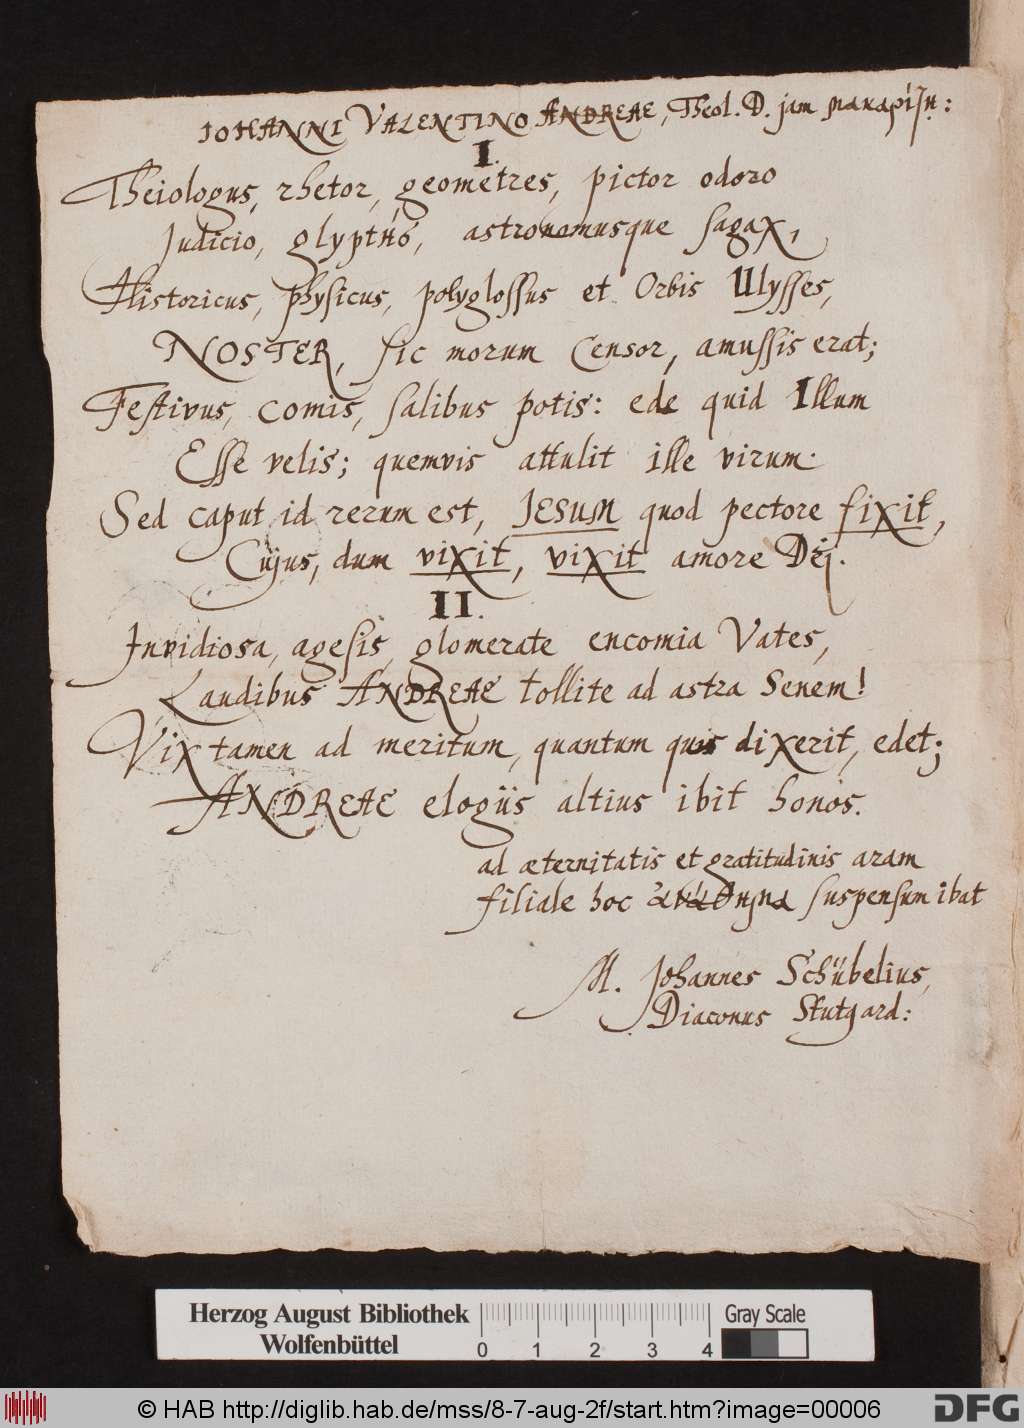 IOHANNI VALENTINO ANDREAE, Theol. D. jam μακαρίτῃ:
I.
Theiologus, rhetor, geometres, pictor odoro
Judicio, glyptes, astronomusque sagax,
Historicus, physicus, polyglossus et Orbis Ulysses,
NOSTER, sic morum Censor, amussis erat;
Festivus, comis, salibus potis: ede quid Illum
Esse velis; quemvis attulit ille virum.
Sed caput id rerum est, JESUM quod pectore fixit,
Cujus, dum vixit, vixit amore Dei.
II.
Invidiosa, agesis, glomerate encomia Vates,
Laudibus ANDREAE tollite ad astra Senem!
Vix tamen ad meritum, quantum quis dixerit, edet;
ANDREAE elogiis altius ibit honos.
ad æternitatis et gratitudinis aram
filiale hoc ἀνάθημα suspensum ibat
M. Johannes Schübelius,
Diaconus Stutgard:
Herzog August Bibliothek
Wolfenbüttel
0 1 2 3 4
Gray Scale
© HAB http://diglib.hab.de/mss/8-7-aug-2f/start.htm?image=00006
DFG